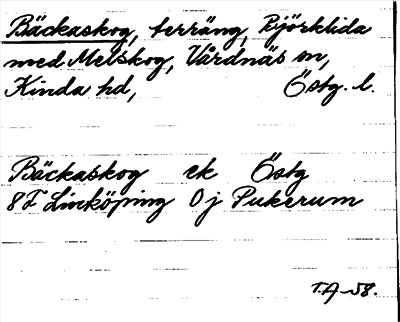 Bäckaskog, terräng, Björklida
med Melskog, Vårdnäs sn,
Kinda hd, Östg. l.
Bäckaskog ek Östg
8F Linköping 0j Pukerum
T.A-58.